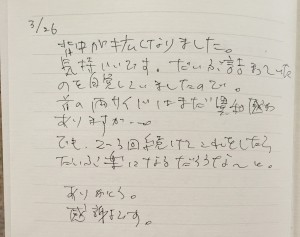 3/26
背中が広くなりました。
気持いいです。だいぶ詰まっていた
のを自覚していましたので。
首の両サイドはまだ違和感が
ありますが…。
でも、2~3回続けてこれをしたら
だいぶ楽になるだろうな～と。
ありがとう。
感謝です。